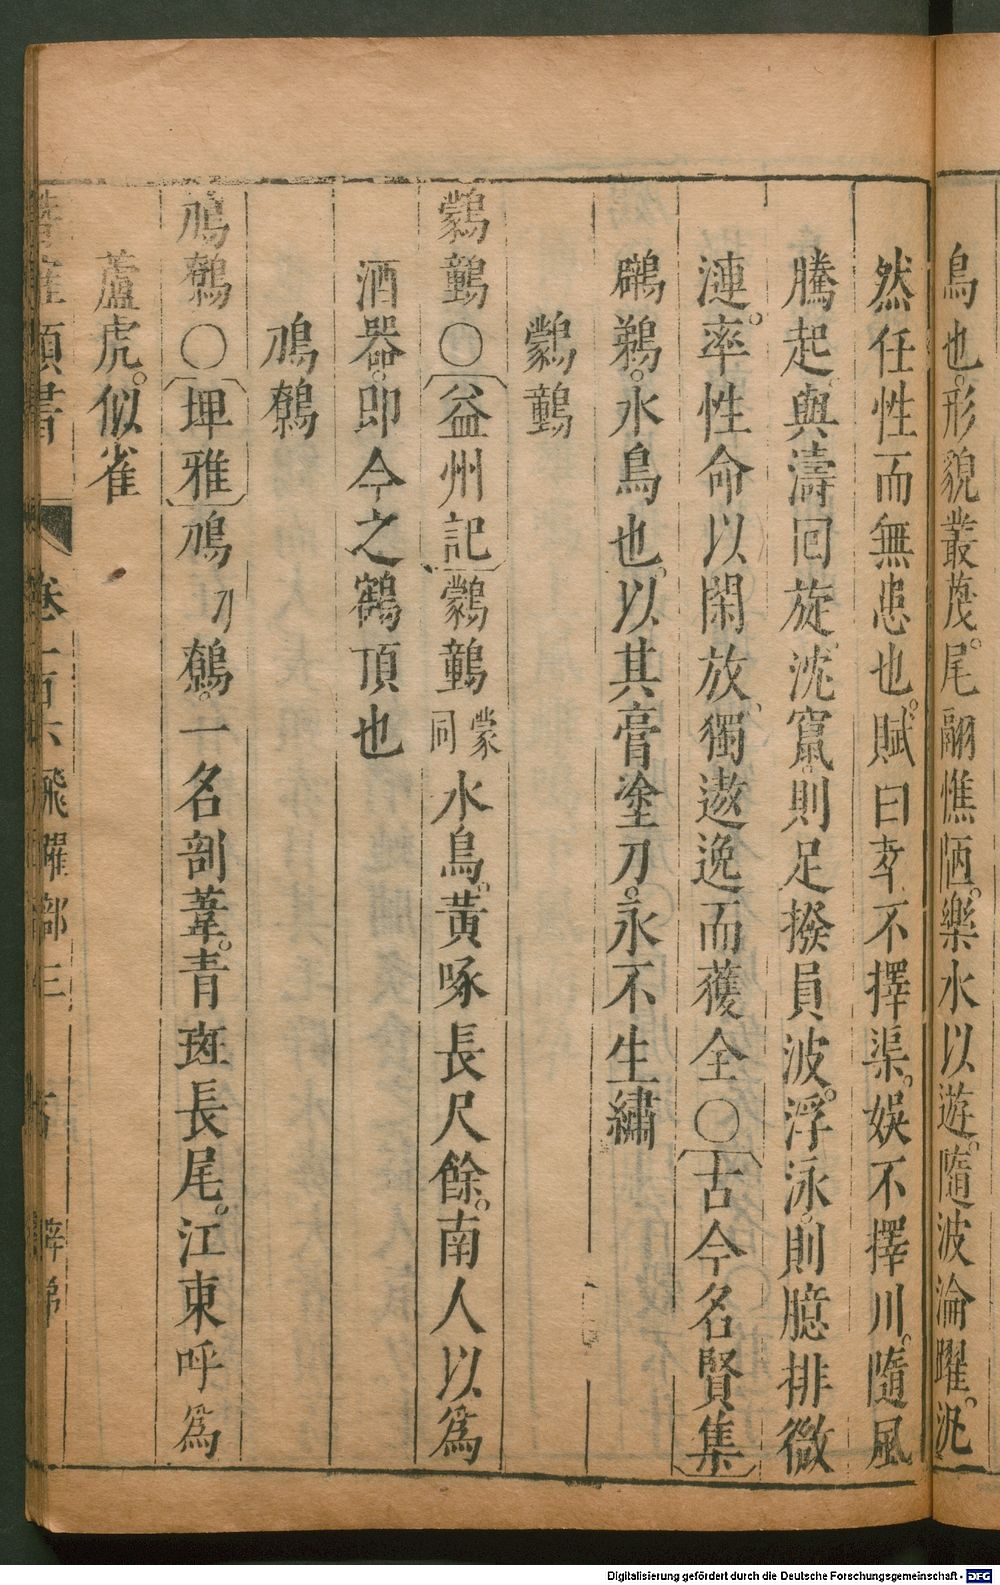 鳥也。形貌叢蔑。尾翮憔陋。樂水以遊。隨波淪躍。汎
然任性而無患也。賦曰李不擇渠。娛不擇川。隨風
騰起。與濤回旋。沈竄。則足撥員波。浮泳。則臆排微
漣。率性命以閑放。獨遨逸而獲全〇〔古今名賢集〕
鸊鵜。水鳥也。以其膏塗刀。永不生繡
鸏鶫
鸏鶫〇〔益州記〕鸏鶫蒙同水鳥。黃啄長尺餘。南人以爲
酒器。即今之鶴頂也
鳭鷯
鳭鷯〇〔埤雅〕鳭刀鷯。一名剖葦。青斑長尾。江東呼爲
蘆虎。似雀
類書
卷一百六 飛躍部三
Digitalisierung gefördert durch die Deutsche Forschungsgemeinschaft - DFG